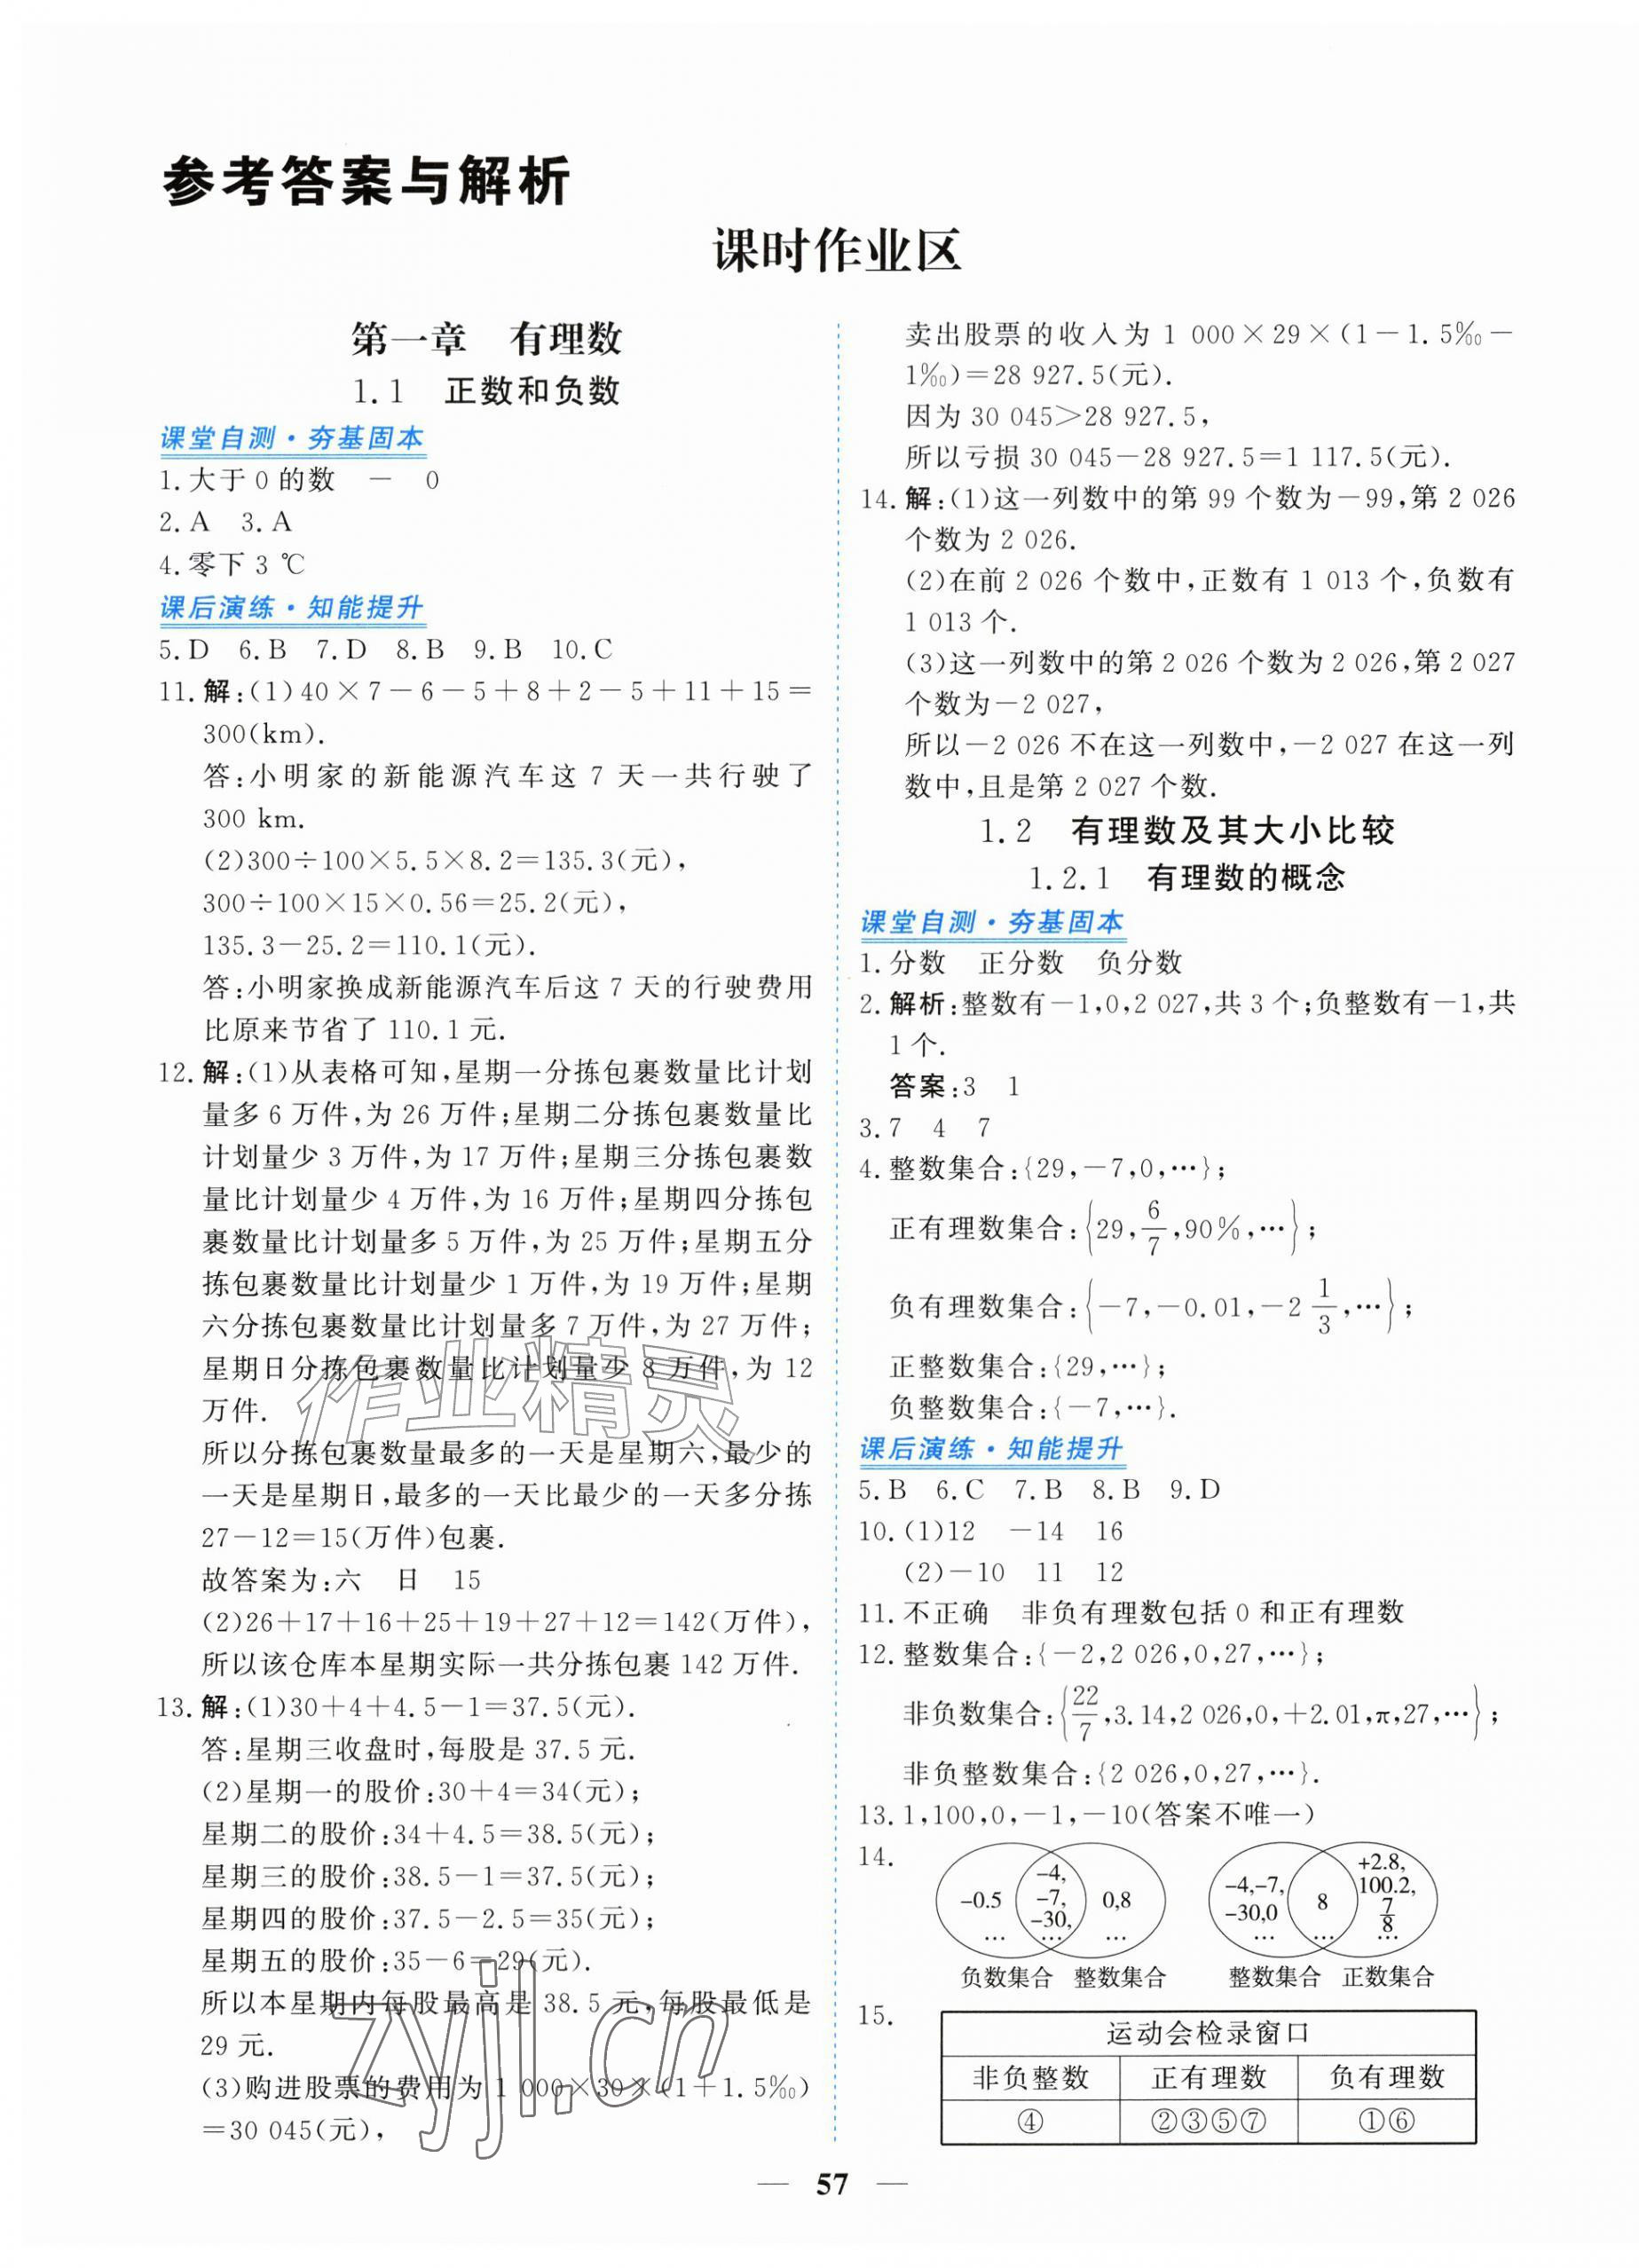 参考答案与解析
课时作业区
第一章 有理数
1.1 正数和负数
课堂自测·夯基固本
1.大于0的数 — 0
2.A 3.A
4.零下3 ℃
课后演练·知能提升
5.D 6.B 7.D 8.B 9.B 10.C
11.解:(1)40×7-6-5+8+2-5+11+15=
300(km).
答:小明家的新能源汽车这7天一共行驶了
300 km.
(2)300÷100×5.5×8.2=135.3(元),
300÷100×15×0.56=25.2(元),
135.3-25.2=110.1(元).
答:小明家换成新能源汽车后这7天的行驶费用
比原来节省了110.1元.
12.解:(1)从表格可知,星期一分拣包裹数量比计划
量多6万件,为26万件;星期二分拣包裹数量比
计划量少3万件,为17万件;星期三分拣包裹数
量比计划量少4万件,为16万件;星期四分拣包
裹数量比计划量多5万件,为25万件;星期五分
拣包裹数量比计划量少1万件,为19万件;星期
六分拣包裹数量比计划量多7万件,为27万件;
星期日分拣包裹数量比计划量少8万件,为12
万件.
所以分拣包裹数量最多的一天是星期六,最少的
一天是星期日,最多的一天比最少的一天多分拣
27-12=15(万件)包裹.
故答案为:六 日 15
(2)26+17+16+25+19+27+12=142(万件),
所以该仓库本星期实际一共分拣包裹142万件.
13.解:(1)30+4+4.5-1=37.5(元).
答:星期三收盘时,每股是37.5元.
(2)星期一的股价:30+4=34(元);
星期二的股价:34+4.5=38.5(元);
星期三的股价:38.5-1=37.5(元);
星期四的股价:37.5-2.5=35(元);
星期五的股价:35-6=29(元).
所以本星期内每股最高是38.5元,每股最低是
29元.
(3)购进股票的费用为1 000×30×(1+1.5‰)
=30 045(元),
卖出股票的收入为1 000×29×(1-1.5‰-
1‰)=28 927.5(元).
因为30 045>28 927.5,
所以亏损30 045-28 927.5=1 117.5(元).
14.解:(1)这一列数中的第99个数为-99,第2 026
个数为2 026.
(2)在前2 026个数中,正数有1 013个,负数有
1 013个.
(3)这一列数中的第2 026个数为2 026,第2 027
个数为-2 027,
所以-2 026不在这一列数中,-2 027在这一列
数中,且是第2 027个数.
1.2 有理数及其大小比较
1.2.1 有理数的概念
课堂自测·夯基固本
1.分数 正分数 负分数
2.解析:整数有-1,0,2 027,共3个;负整数有-1,共
1个.
答案:3 1
3.7 4 7
4.整数集合:{29,-7,0,…};
正有理数集合:{29,6/7,90%,…};
负有理数集合:{-7,-0.01,-2 1/3,…};
正整数集合:{29,…};
负整数集合:{-7,…}.
课后演练·知能提升
5.B 6.C 7.B 8.B 9.D
10.(1)12 -14 16
(2)-10 11 12
11.不正确 非负有理数包括0和正有理数
12.整数集合:{-2,2 026,0,27,…};
非负数集合:{22/7,3.14,2 026,0,+2.01,π,27,…};
非负整数集合:{2 026,0,27,…}.
13.1,100,0,-1,-10(答案不唯一)
14.
-0.5 … -4, -7, -30, … 0,8 …
负数集合 整数集合
-4,-7, -30,0 … 8 … +2.8, 100.2, 7/8 …
整数集合 正数集合
15.
运动会检录窗口
非负整数 正有理数 负有理数
④ ②③⑤⑦ ①⑥
— 57 —
作业精灵
zyjl.cn